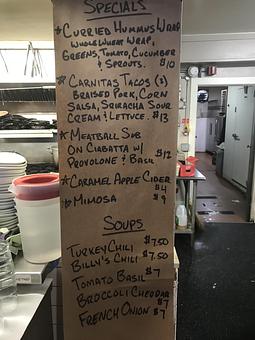 SPECIALS
*CURRIED HUMMUS WRAP
WHOLE WHEAT WRAP,
GREENS, TOMATO, CUCUMBER
& SPROUTS. $10
*CARNITAS TACOS (3)
BRAISED PORK, CORN
SALSA, SRIRACHA SOUR
CREAM & LETTUCE. $13
*MEATBALL SUB
ON CIABATTA W/
PROVOLONE & BASIL $12
*CARAMEL APPLE CIDER
$4
*MIMOSA $9
SOUPS
TURKEY CHILI $7.50
BILLY'S CHILI $7.50
TOMATO BASIL $7
BROCCOLI CHEDDAR
$7
FRENCH ONION $7